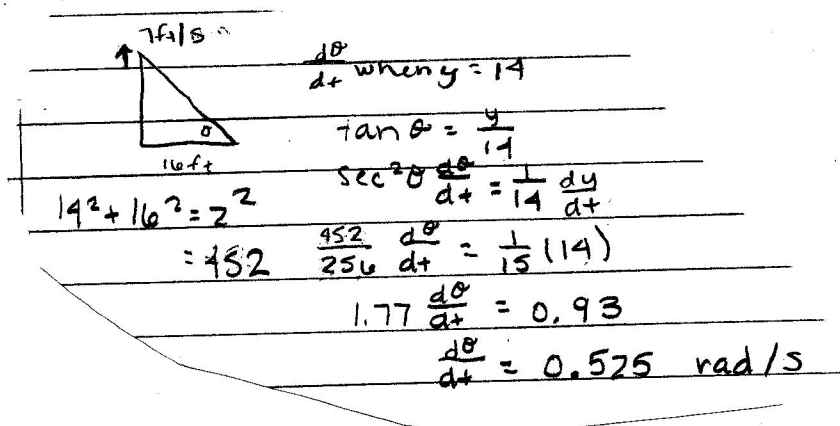 7ft/s
dθ/dt when y = 14
θ
tan θ = y/14
16ft
sec²θ dθ/dt = 1/14 dy/dt
14² + 16² = z²
= 452
452/256 dθ/dt = 1/15 (14)
1.77 dθ/dt = 0.93
dθ/dt = 0.525 rad/s